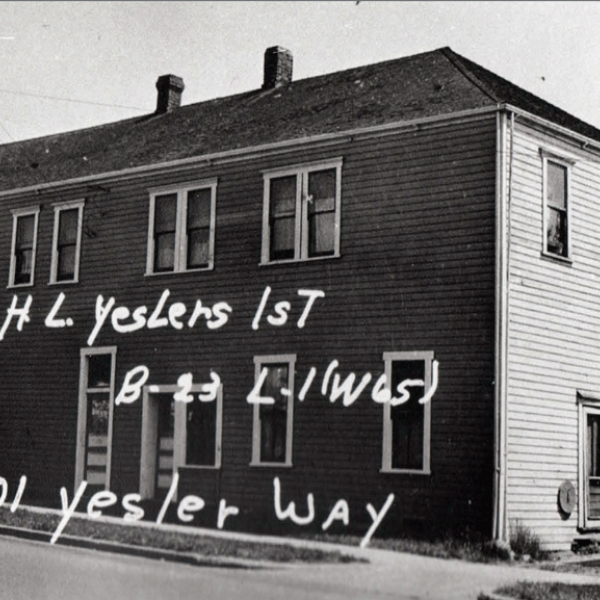 H L. Yeslers 1st
B-23 L-1(W65)
01 yesler WAY